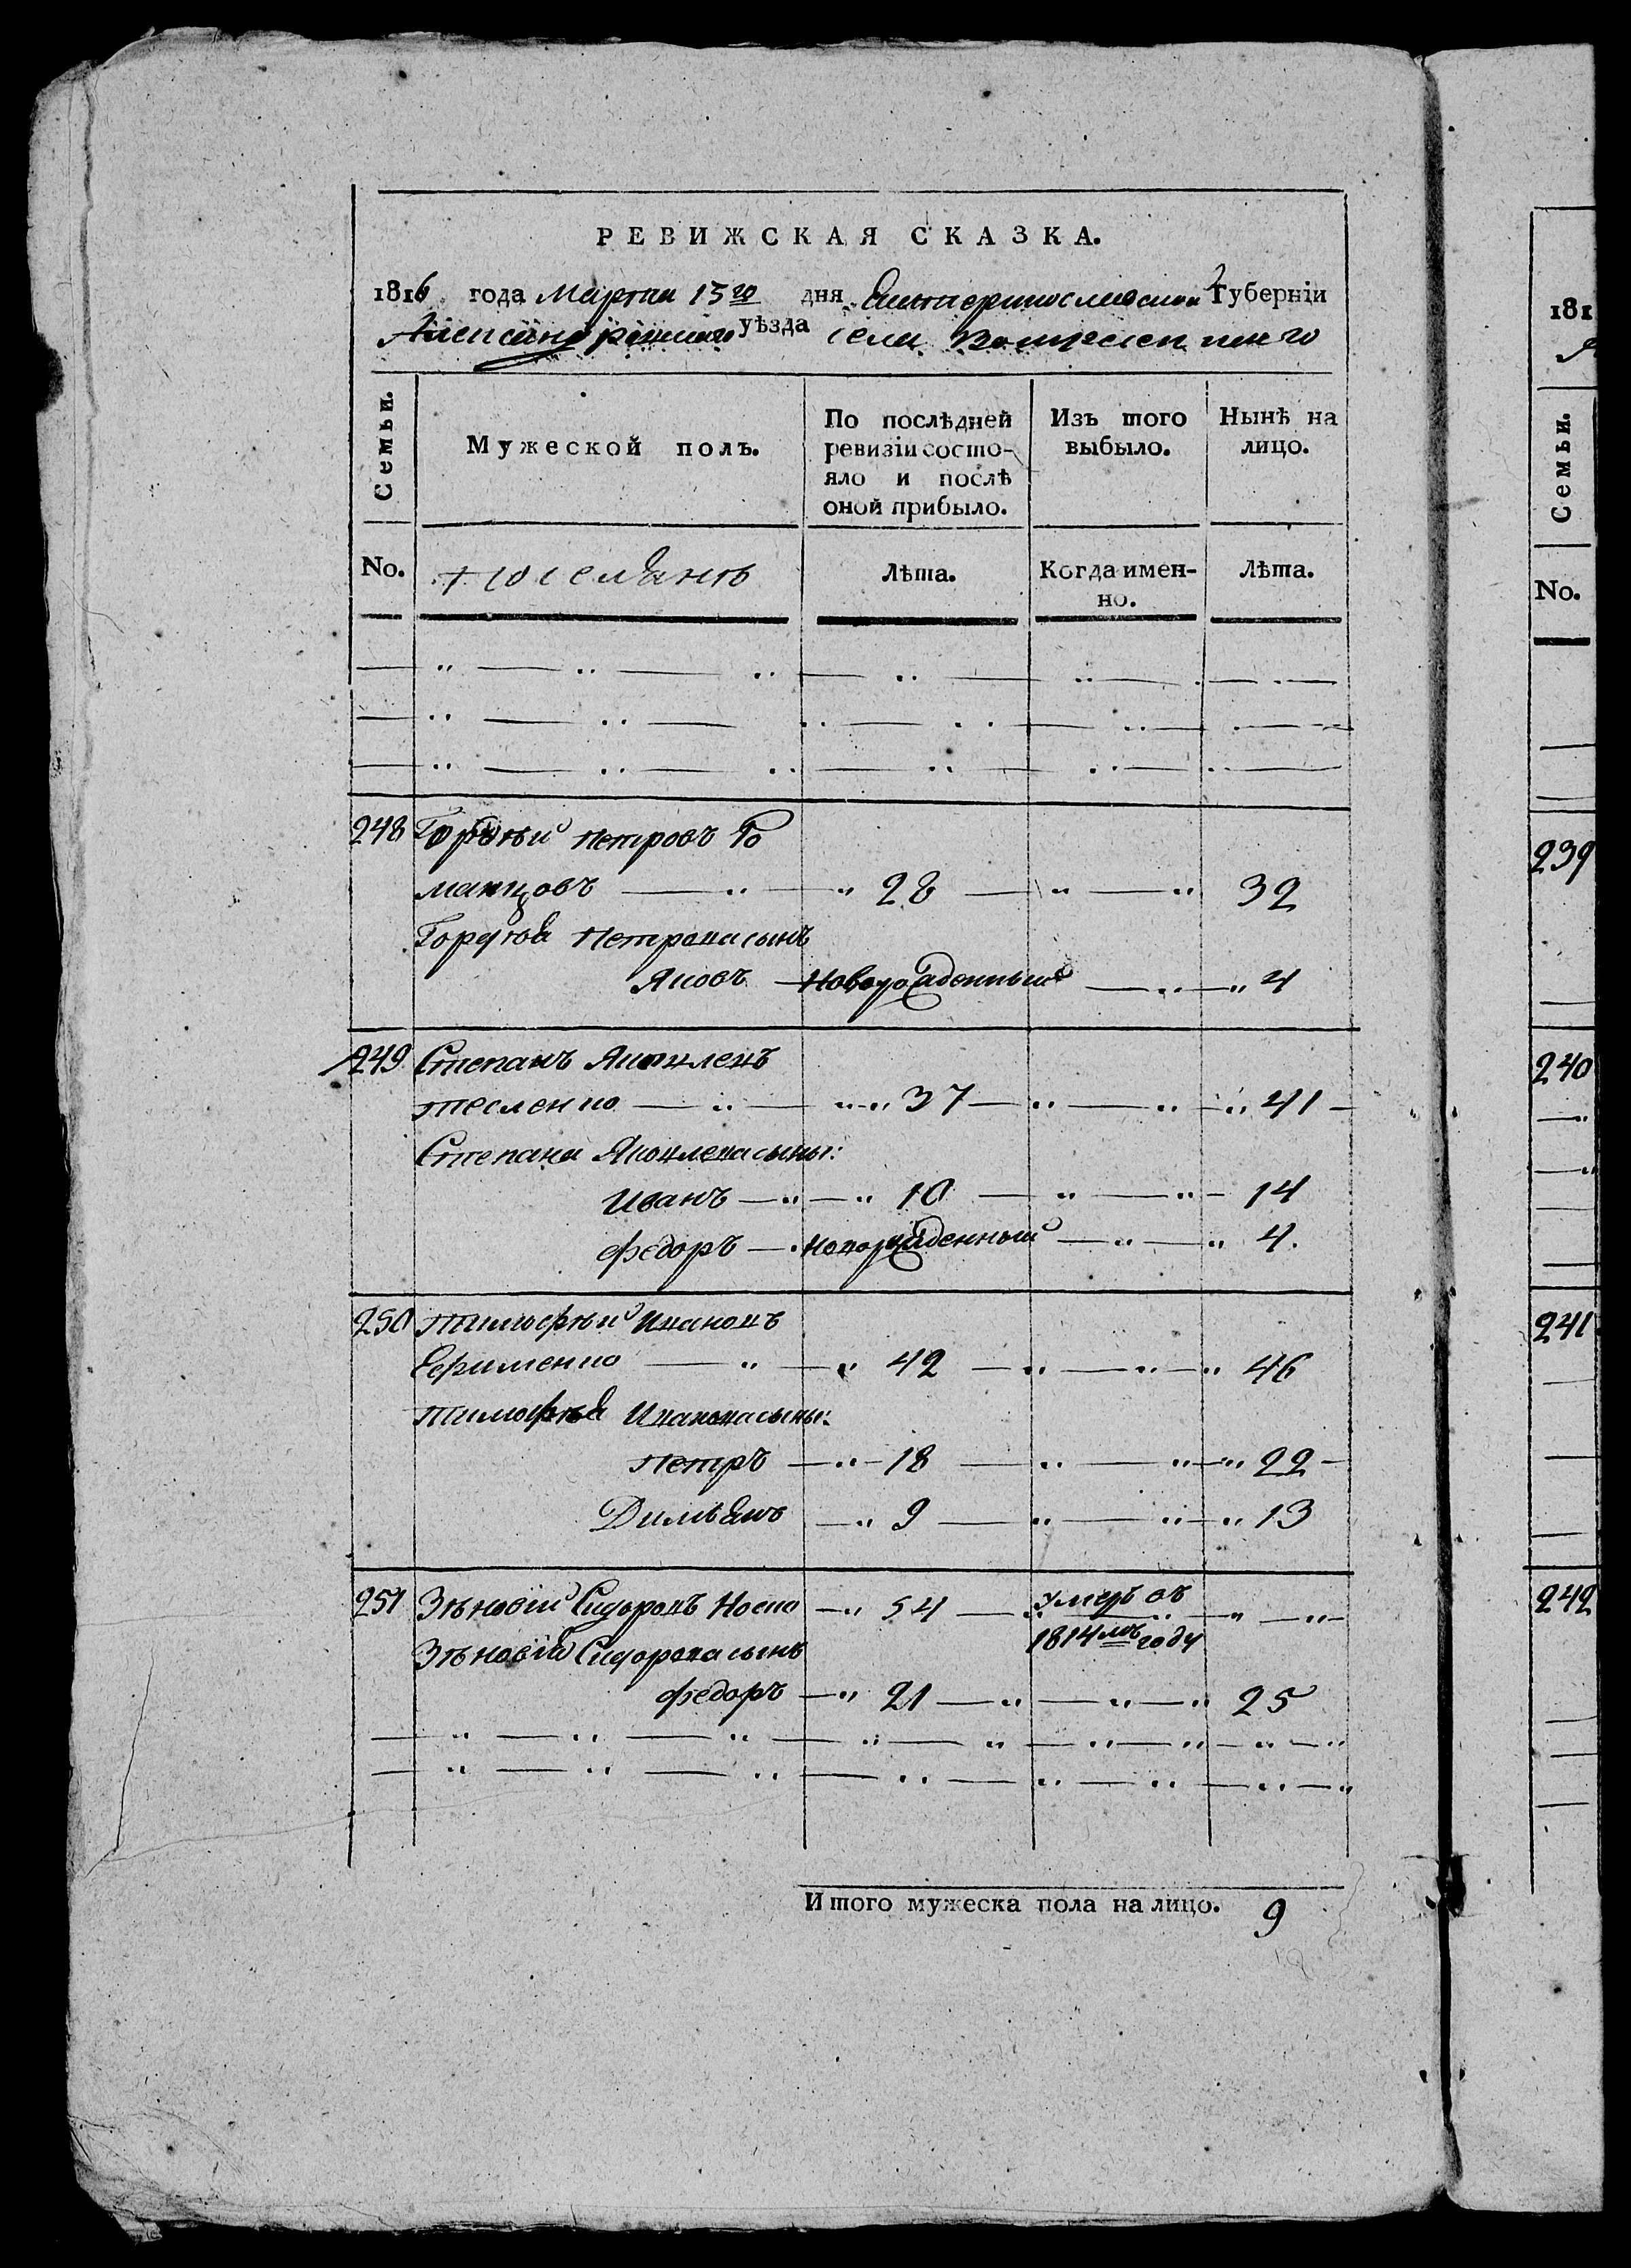 РЕВИЖСКАЯ СКАЗКА.
1816 года Марта 15го дня Екатеринославской Губерніи
Александровскаго уѣзда села Вознесенскаго
Семьи.
Мужеской полъ.
По послѣдней ревизіи состояло и послѣ оной прибыло.
Изъ того выбыло.
Нынѣ на лицо.
No. поселянъ Лѣта. Когда именно. Лѣта.
248 Гордѣй Петровъ Ро
манцовъ 28 32
Гордѣя Петрова сынъ
Яковъ Новорожденный 4
249 Степанъ Яковлевъ
Тесленко 37 41
Степана Яковлева сыны:
Иванъ 10 14
Федоръ Новорожденный 4.
250 Тимофѣй Ивановъ
Ефименко 42 46
Тимофѣя Иванова сыны:
Петръ 18 22
Димьянъ 9 13
251 Зѣновій Сидоровъ Носко 54 умеръ въ
1814мъ году
Зѣновія Сидорова сынъ
Федоръ 21 25
Итого мужеска пола на лицо. 9
181
Семьи.
No.
239
240
241
242